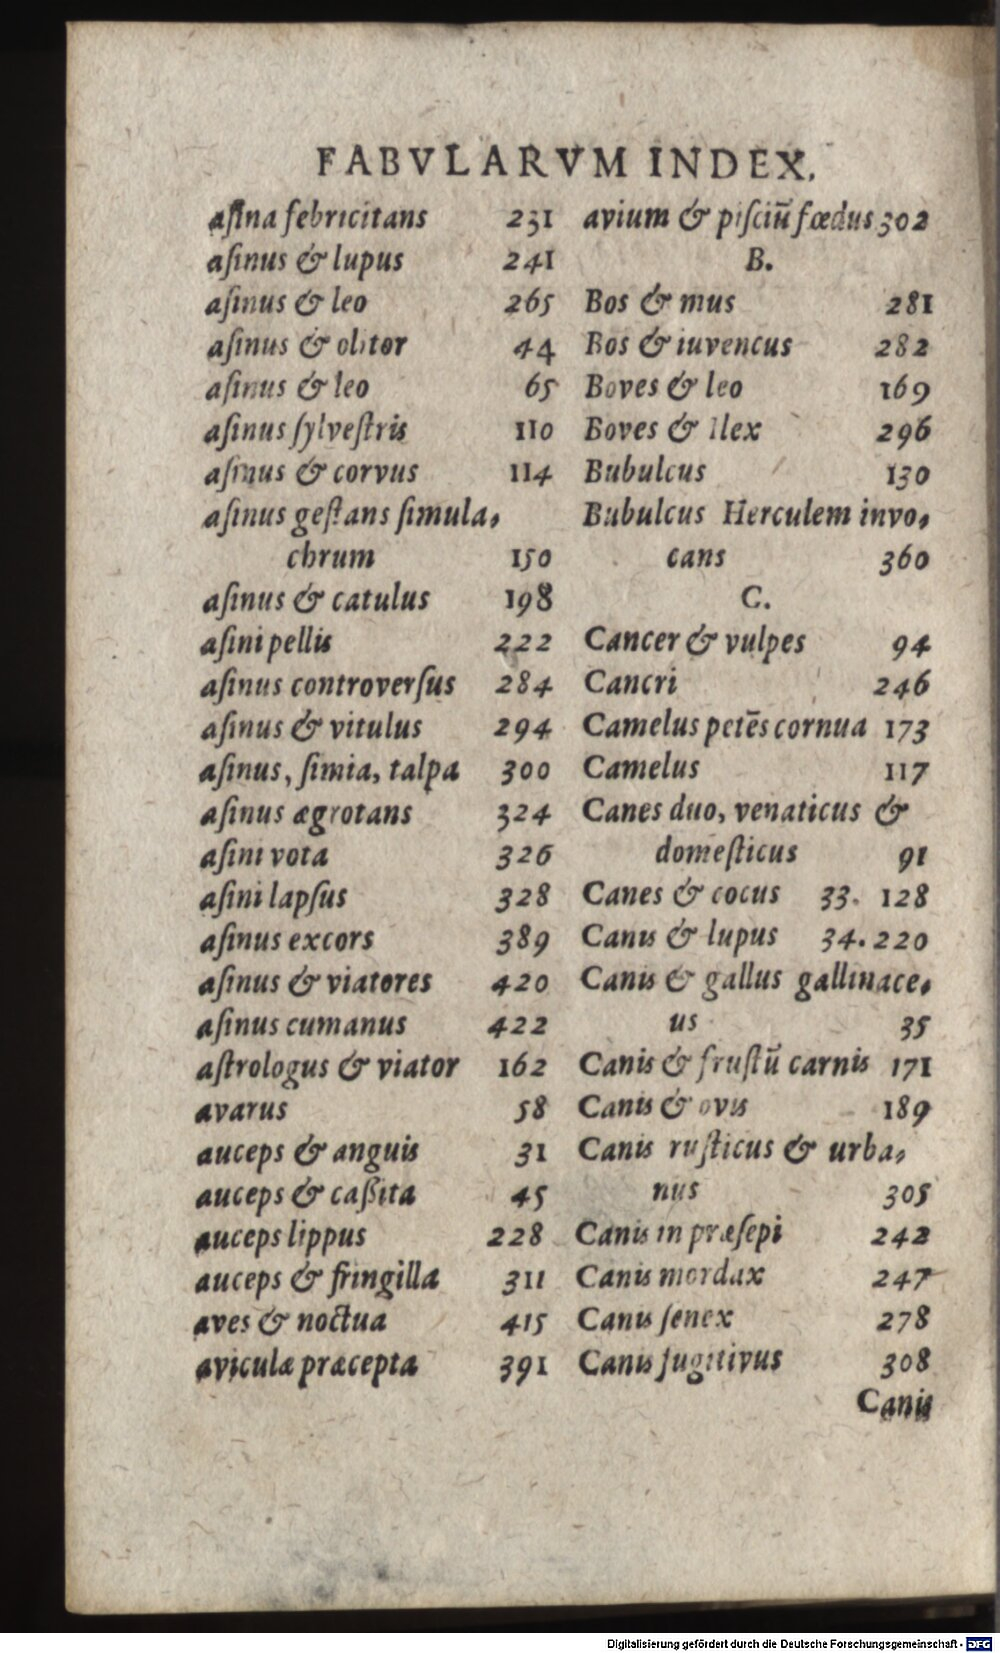 FABVLARVM INDEX.
aſina febricitans 231
aſinus & lupus 241
aſinus & leo 265
aſinus & olitor 44
aſinus & leo 65
aſinus ſylveſtris 110
aſinus & corvus 114
aſinus geſtans ſimula-
chrum 150
aſinus & catulus 198
aſini pellis 222
aſinus controverſus 284
aſinus & vitulus 294
aſinus, ſimia, talpa 300
aſinus ægrotans 324
aſini vota 326
aſini lapſus 328
aſinus excors 389
aſinus & viatores 420
aſinus cumanus 422
aſtrologus & viator 162
avarus 58
auceps & anguis 31
auceps & caßita 45
auceps lippus 228
auceps & fringilla 311
aves & noctua 415
aviculæ præcepta 391
avium & piſciū fœdus 302
B.
Bos & mus 281
Bos & iuvencus 282
Boves & leo 169
Boves & Ilex 296
Bubulcus 130
Bubulcus Herculem invo-
cans 360
C.
Cancer & vulpes 94
Cancri 246
Camelus petēs cornua 173
Camelus 117
Canes duo, venaticus &
domeſticus 91
Canes & cocus 33. 128
Canis & lupus 34. 220
Canis & gallus gallinace-
us 35
Canis & fruſtū carnis 171
Canis & ovis 189
Canis ruſticus & urba-
nus 305
Canis in præſepi 242
Canis mordax 247
Canis ſenex 278
Canis fugitivus 308
Canis
Digitalisierung gefördert durch die Deutsche Forschungsgemeinschaft - DFG